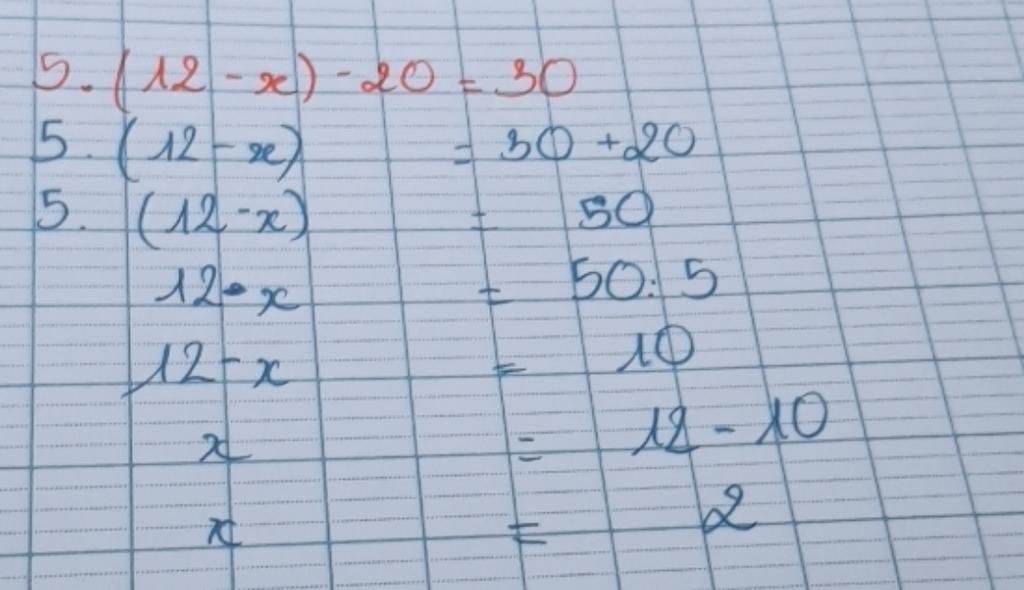 5. (12 - x) - 20 = 30
5. (12 - x) = 30 + 20
5. (12 - x) = 50
12 - x = 50 : 5
12 - x = 10
x = 12 - 10
x = 2